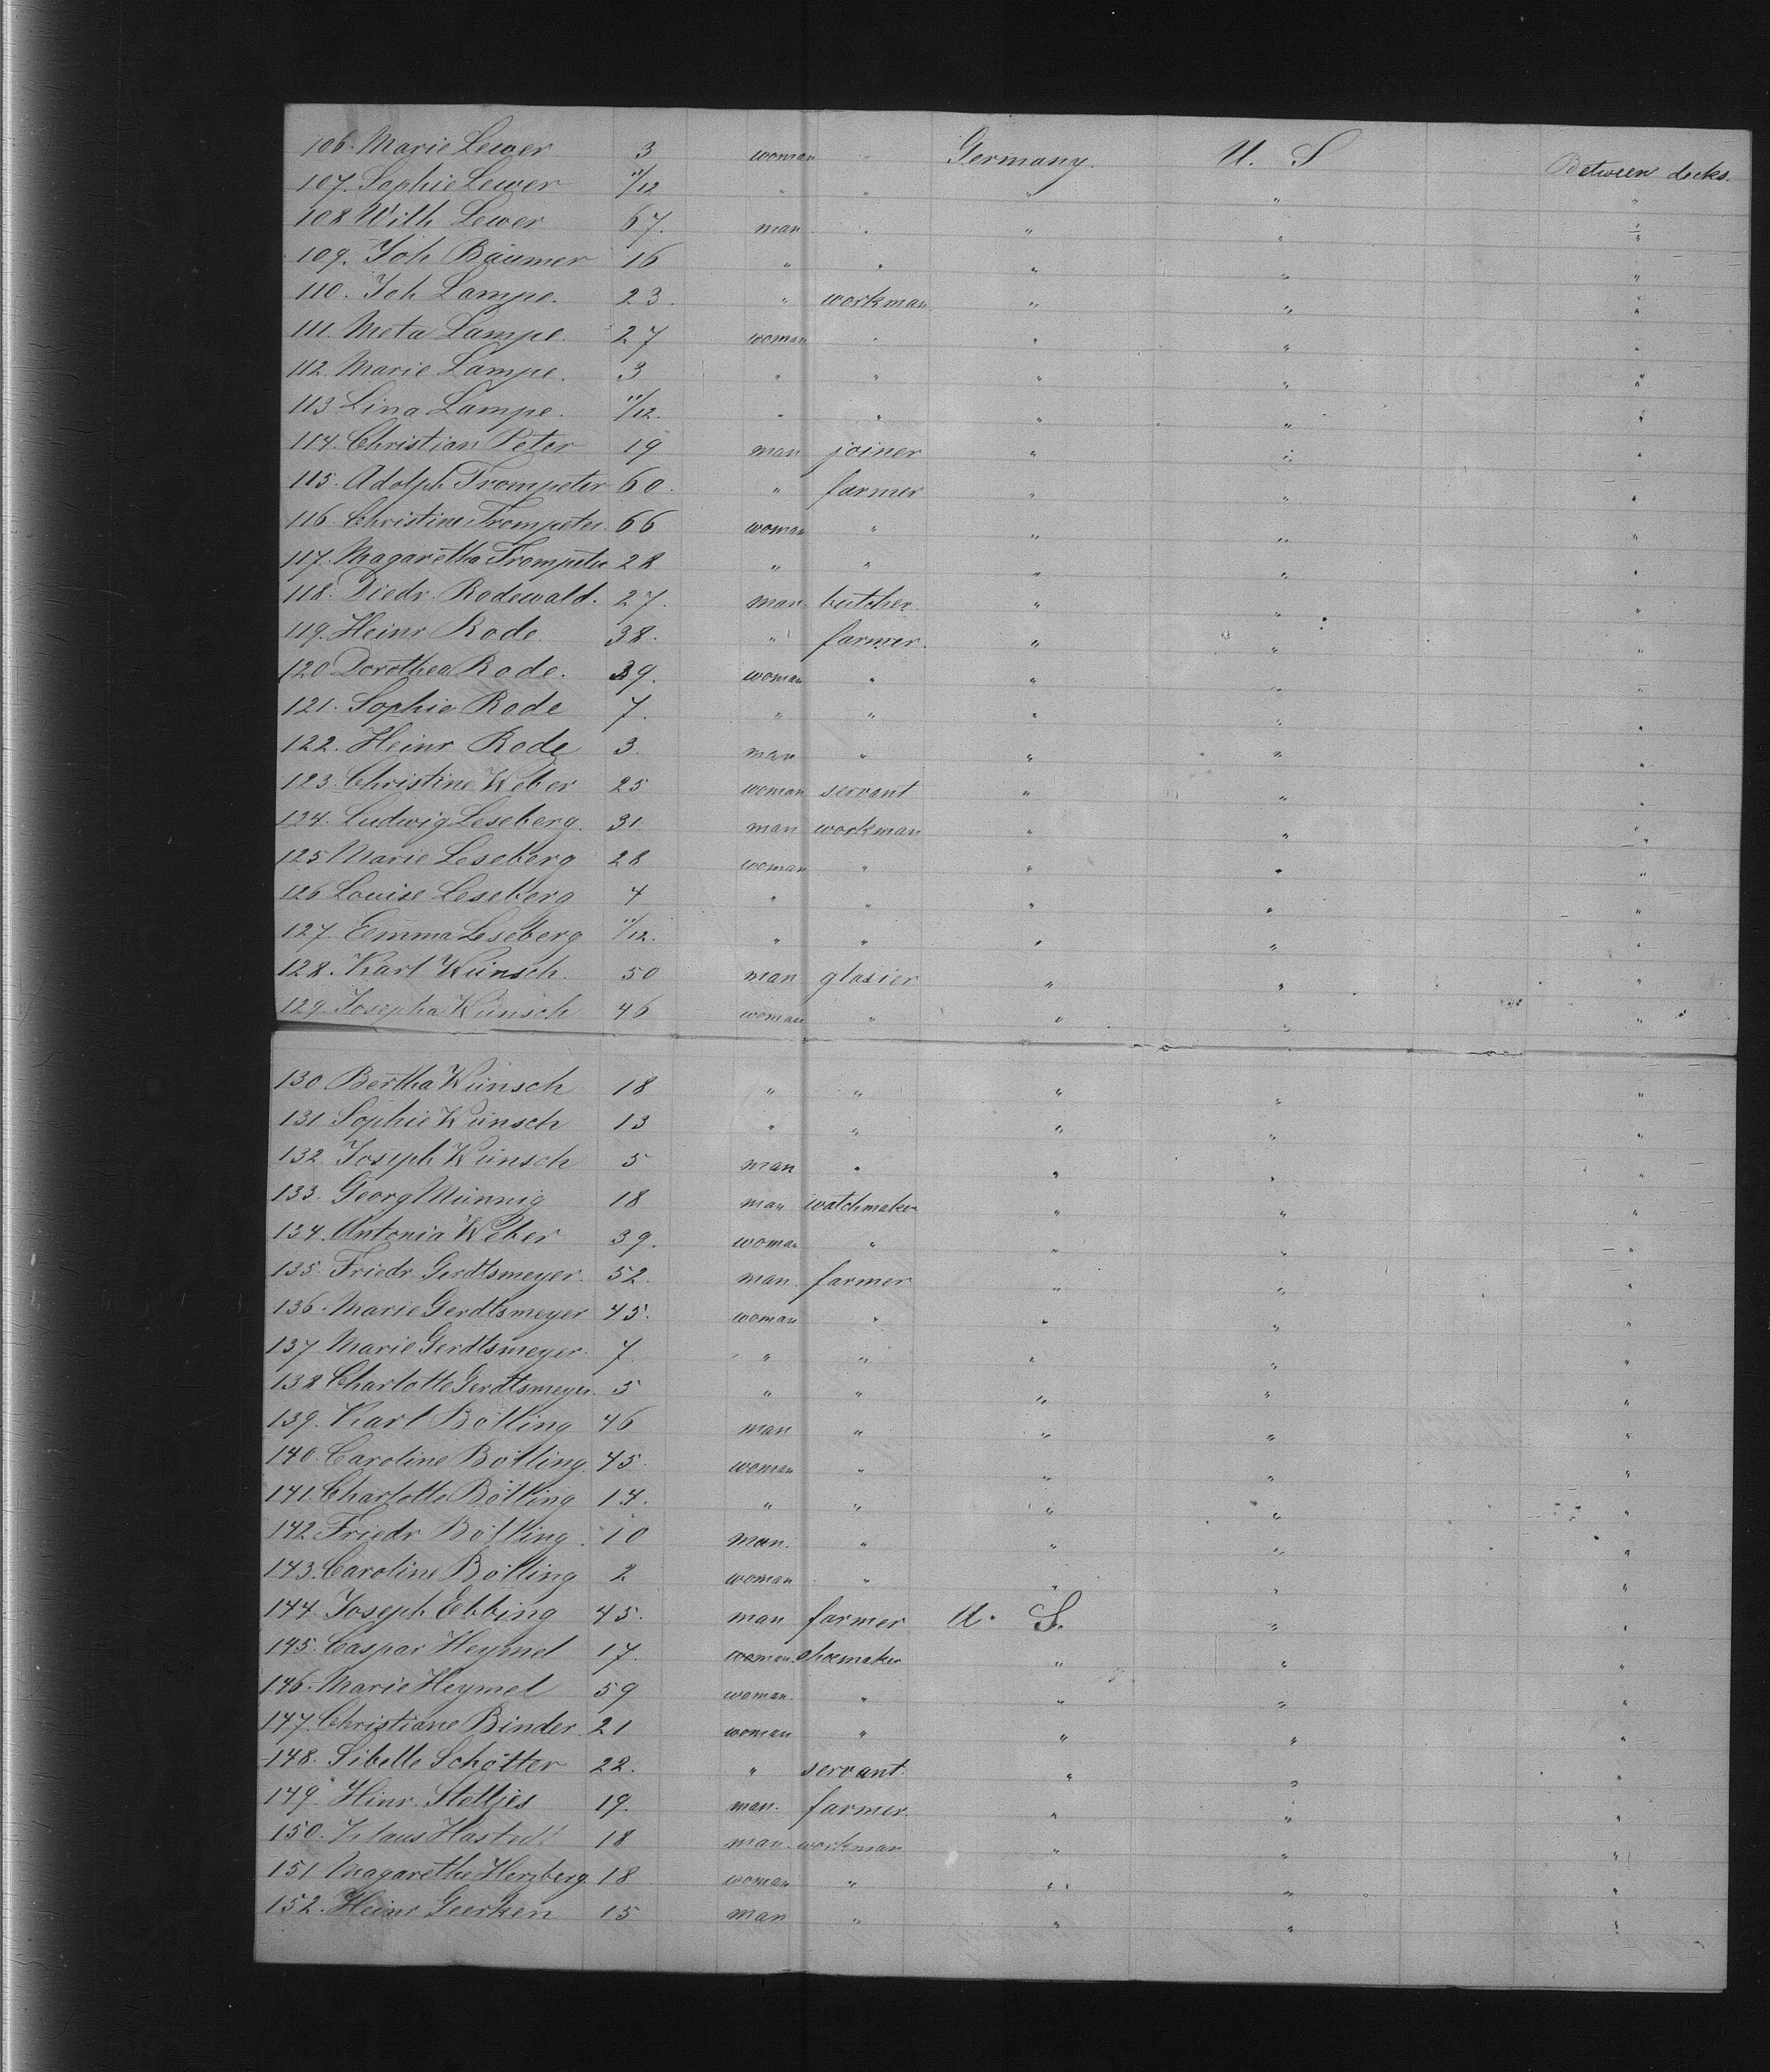 106. Marie Lewer 3 woman " Germany. U. S Between decks.
107. Sophie Lewer 11/12 " " " " "
108 Wilh Lewer 67. man " " " "
109. Joh Bäumer 16 " " " " "
110. Joh Lampe. 23. " workman " " "
111. Meta Lampe. 27 woman " " " "
112. Marie Lampe. 3 " " " " "
113 Lina Lampe. 11/12. " " " " "
114. Christian Peter 19 man joiner " " "
115. Adolph Trompeter 60. " farmer " " "
116. Christine Trompeter. 66 woman " " " "
117. Magaretha Trompeter 28 " " " " "
118. Diedr. Rodewald. 27. man butcher. " " "
119. Heinr Rode. 38. " farmer. " " "
120 Dorothea Rode. 39. woman " " " "
121. Sophie Rode 7. " " " " "
122. Heinr Rode 3. man " " " "
123. Christine Weber 25 woman servant " " "
124. Ludwig Leseberg. 31 man workman " " "
125 Marie Leseberg 28 woman " " " "
126 Louise Leseberg 4 " " " " "
127. Emma Leseberg 11/12. " " " " "
128. Karl Wünsch. 50 man glasier " " "
129. Josepha Wünsch 46 woman " " " "
130 Bertha Wünsch 18 " " " " "
131 Sophie Wünsch 13 " " " " "
132. Joseph Wünsch 5 man " " " "
133. Georg Münnig 18 man watchmaker " " "
134. Antonia Weber 39. woman " " " "
135. Friedr Gerdtsmeyer. 52. man. farmer " " "
136. Marie Gerdtsmeyer 45. woman " " " "
137 Marie Gerdtsmeyer. 7. " " " " "
138 Charlotte Gerdtsmeyer. 5 " " " " "
139. Karl Bölling 46 man " " " "
140. Caroline Bölling. 45. woman " " " "
141. Charlotte Bölling 14. " " " " "
142 Friedr Bölling. 10 man. " " " "
143. Caroline Bölling 2 woman " " " "
144. Joseph Ebbing 45. man farmer U. S. " "
145. Caspar Heymel 17. woman. shoemaker " " "
146. Marie Heymel 59 woman. " " " "
147. Christiane Binder 21 woman " " " "
148. Sibelle Schötter 22. " servant. " " "
149. Hinr. Stelljes 19. man. farmer. " " "
150. Klaus Hastedt 18 man. workman " " "
151 Magarethe Herzberg. 18 woman " " " "
152. Heinr Geerken 15 man " " " "